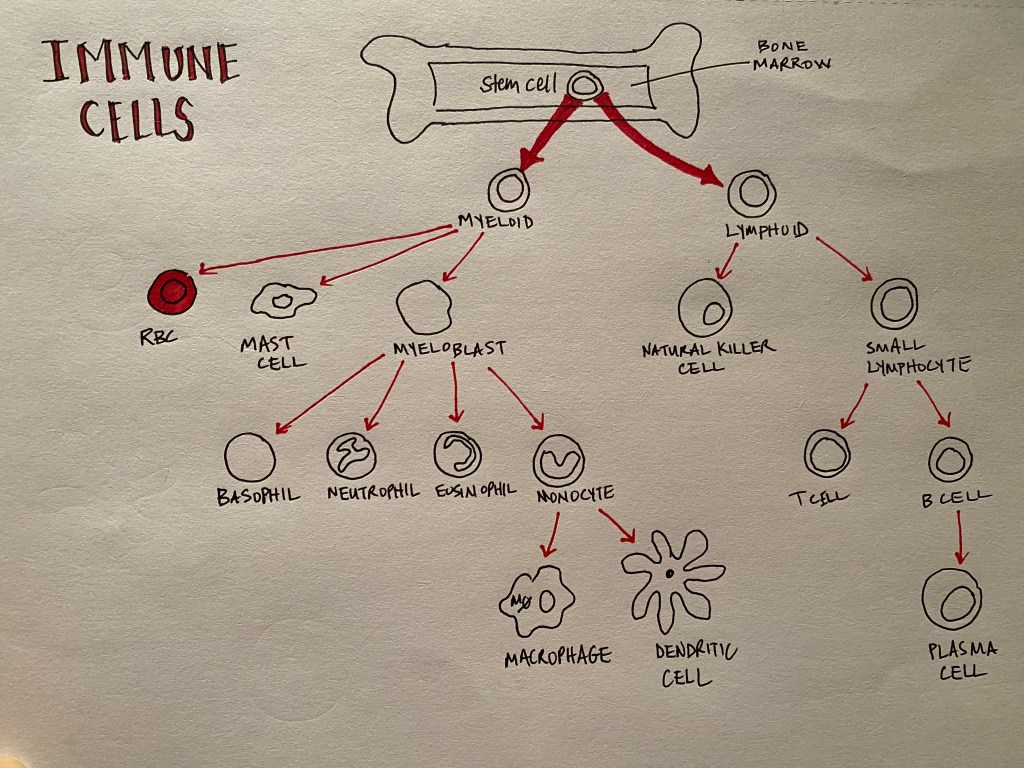 IMMUNE
CELLS
BONE
MARROW
Stem cell
MYELOID
LYMPHOID
RBC
MAST
CELL
MYELOBLAST
NATURAL KILLER
CELL
SMALL
LYMPHOCYTE
BASOPHIL
NEUTROPHIL
EOSINOPHIL
MONOCYTE
T CELL
B CELL
MØ
MACROPHAGE
DENDRITIC
CELL
PLASMA
CELL